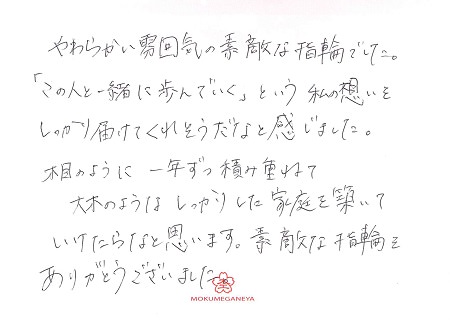 やわらかい雰囲気の素敵な指輪でした。
「この人と一緒に歩んでいく」という私の想いを
しっかり届けてくれそうだなと感じました。
木目のように 一年ずつ積み重ねて
大木のような しっかりした家庭を築いて
いけたらなと思います。素敵な指輪を
ありがとうございました。
MOKUMEGANEYA